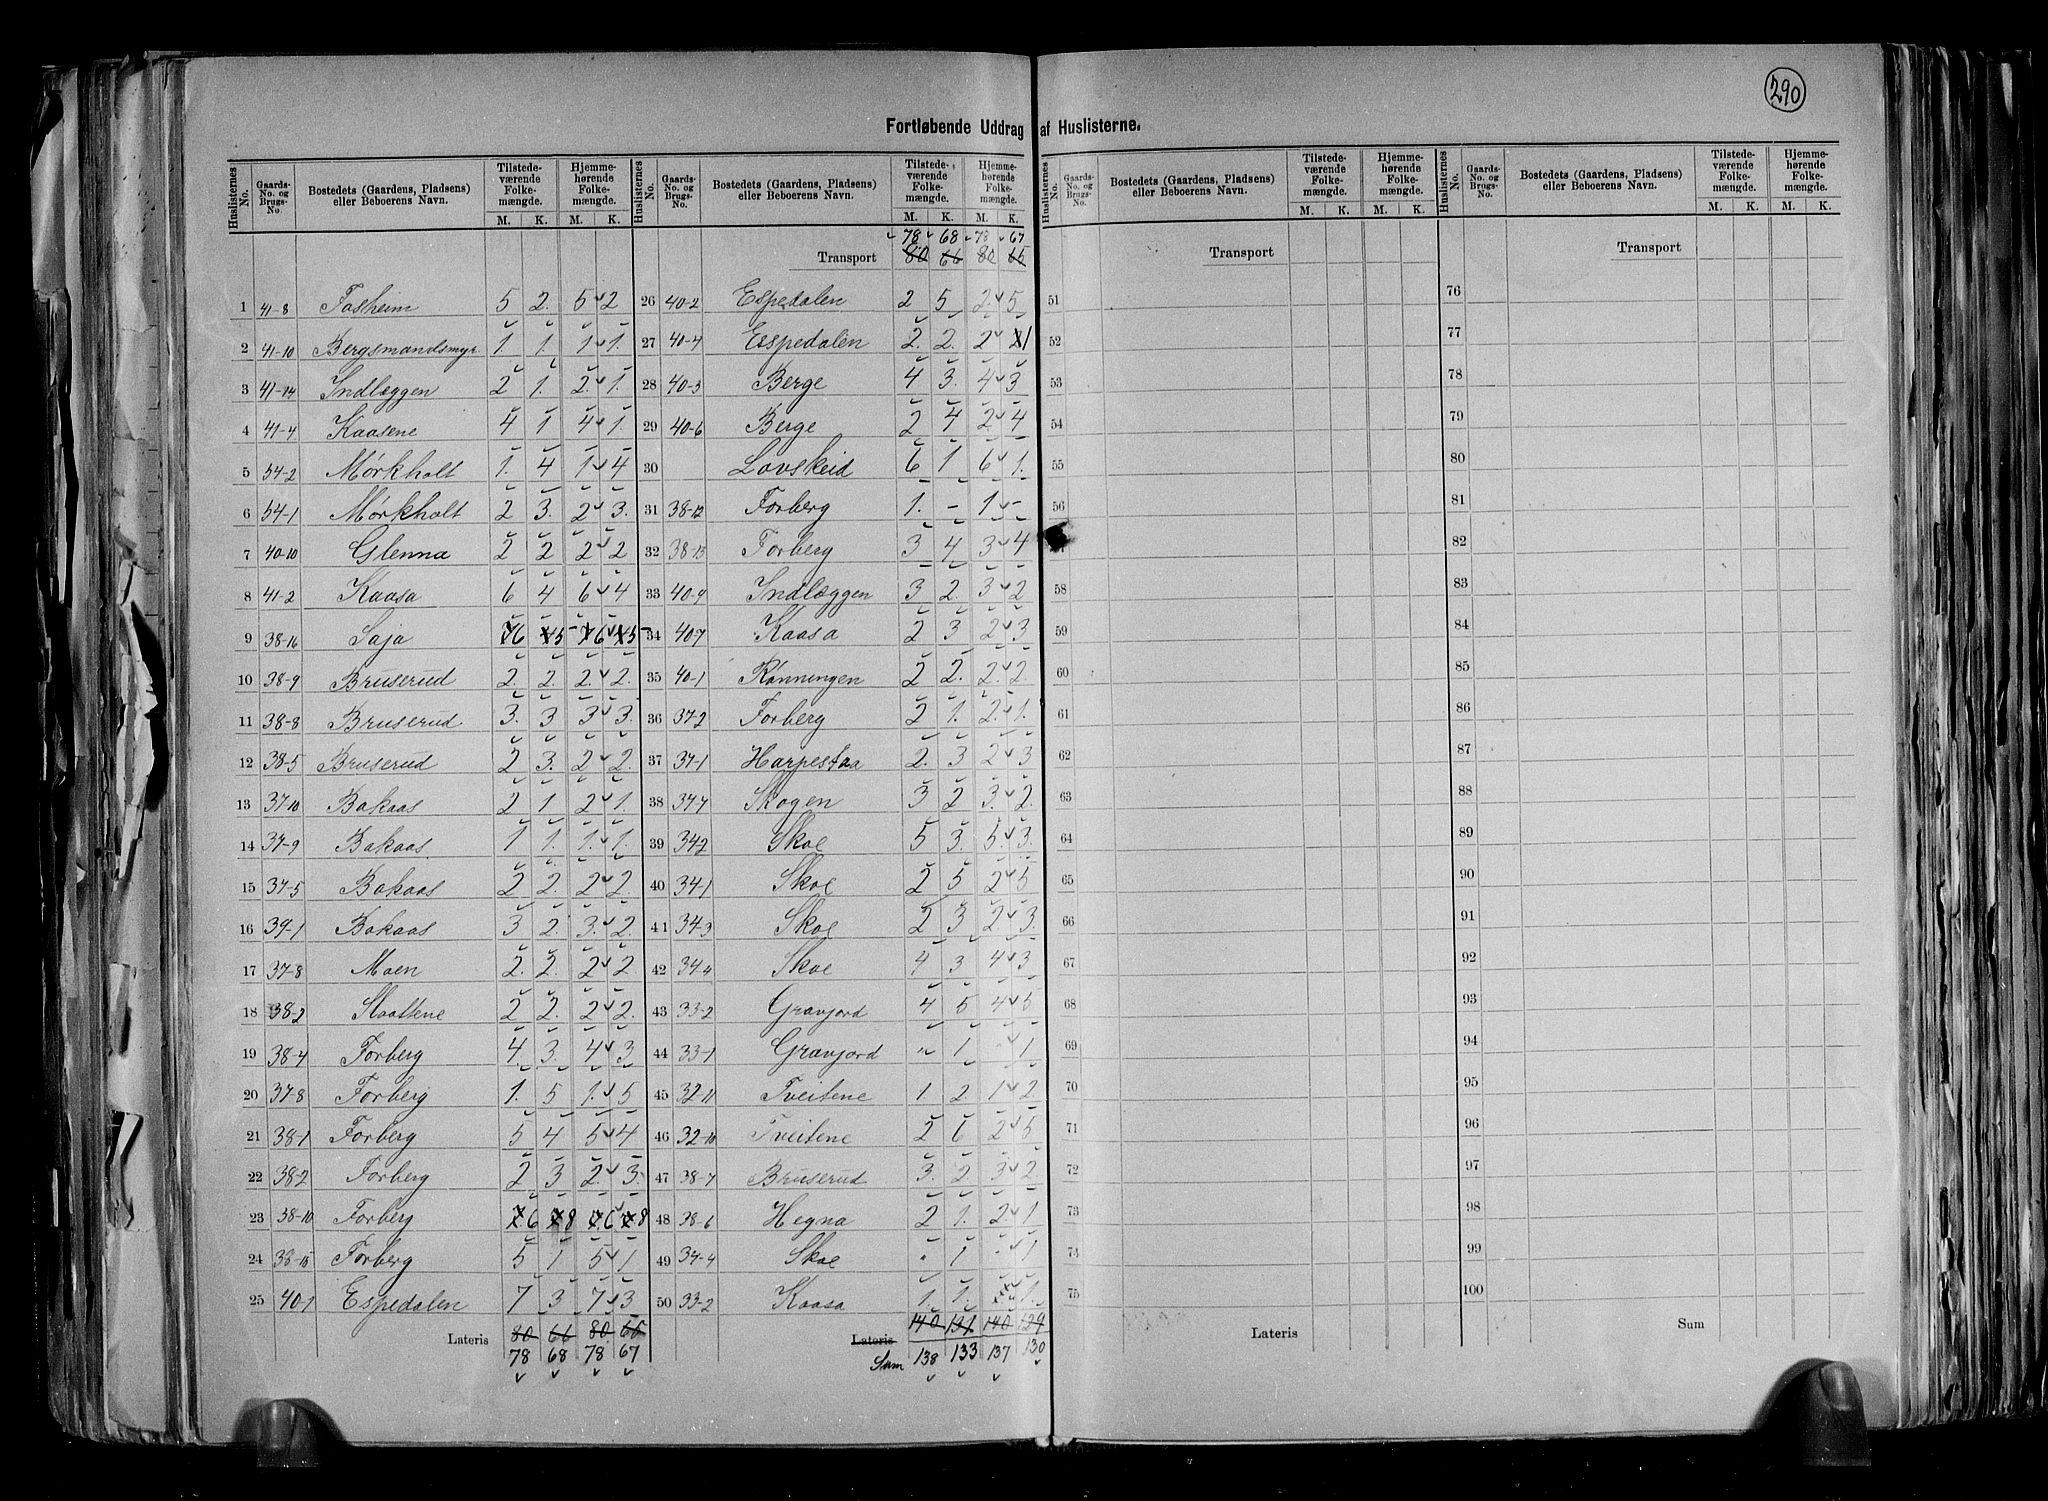 290
Fortløbende Uddrag af Huslisterne.
Huslisternes No. Gaards-No. og Brugs-No. Bostedets (Gaardens, Pladsens) eller Beboerens Navn. Tilstedeværende Folkemængde. M. K. Hjemmehørende Folkemængde. M. K.
1 41-8 Fosheim 5 2. 5 2
2 41-10 Bergsmandsmyr. 1. 1. 1 1.
3 41-14 Indlæggen 2 1. 2. 1.
4 41-4 Kaasene 4 1 4 1
5 54-2 Mørkholt 1. 4 1 4
6 54-1 Mørkholt 2 3. 2 3.
7 40-10 Glenna 2 2 2 2
8 41-2 Kaasa 6 4 6 4
9 38-16 Saja 6 5 6 5
10 38-9 Bruserud 2. 2. 2. 2.
11 38-8 Bruserud. 3. 3 3 3.
12 38-5 Bruserud 2 3. 2 2.
13 37-10 Bakaas 2 1 2 1.
14 37-9 Bakaas. 1 1. 1. 1.
15 37-5 Bakaas 2 2. 2 2.
16 39-1 Bakaas 3 2. 3. 2.
17 37-8 Moen 2. 2. 2 2
18 38-2 Slaattene 2 2. 2 2.
19 38-4 Forberg 4. 3. 4 3
20 37-8 Forberg 1. 5 1. 5
21 38-1 Forberg 5 4 5 4
22 38-2 Forberg 2 3 2. 3.
23 38-10 Forberg 6 8 6 8
24 38-15 Forberg 5 1 5 1
25 40-1 Espedalen 7 3 7 3
Lateris 80 66 80. 65
78 68 78 67
Huslisternes No. Gaards-No. og Brugs-No. Bostedets (Gaardens, Pladsens) eller Beboerens Navn. Tilstedeværende Folkemængde. M. K. Hjemmehørende Folkemængde. M. K.
78 68 78 67
Transport 80 66 80 65
26 40-2 Espedalen 2 5 2 5
27 40-4 Espedalen 2. 2. 2 1
28 40-3 Berge 4 3. 4 3
29 40-6 Berge 2 4 2 4
30 Lovskeid 6 1 6 1.
31 38-12 Forberg 1. - 1 -
32 38-13 Forberg 3 4 3 4
33 40-9 Indlæggen 3 2. 3 2
34 40-7 Kaasa 2 3 2 3
35 40-1 Rønningen 2 2. 2. 2.
36 37-2 Forberg 2 1. 2. 1.
37 37-1 Harpestaa 2. 3 2 3
38 34-7 Skogen 3 2 3. 2.
39 34-2 Skoe 5 3. 5. 3.
40 34-1 Skoe 2 5 2 5
41 34-3 Skoe 2 3 2. 3.
42 34-4 Skoe 4 3 4 3
43 33-2 Gravjord 4 5 4 5
44 33-1 Gravjord " 1 - 1
45 32-11 Tveitene 1 2. 1 2
46 32-10 Tveitene 2 6 2 5
47 38-7 Bruserud 3. 2 3 2
48 38-6 Hegna 2 1. 2 1
49 34-4 Skoe " 1 - 1
50 33-2 Kaasa 1. 1. 1.
Lateris 140 131 140 129
Sum 138 133 137 130
Huslisternes No. Gaards-No. og Brugs-No. Bostedets (Gaardens, Pladsens) eller Beboerens Navn. Tilstedeværende Folkemængde. M. K. Hjemmehørende Folkemængde. M. K.
Transport
51
52
53
54
55
56
58
59
60
61
62
63
64
65
66
67
68
69
70
71
72
73
74
75
Lateris
Huslisternes No. Gaards-No. og Brugs-No. Bostedets (Gaardens, Pladsens) eller Beboerens Navn. Tilstedeværende Folkemængde. M. K. Hjemmehørende Folkemængde. M. K.
Transport
76
77
78
79
80
81
82
83
84
85
86
87
88
89
90
91
92
93
94
95
96
97
98
99
100
Sum